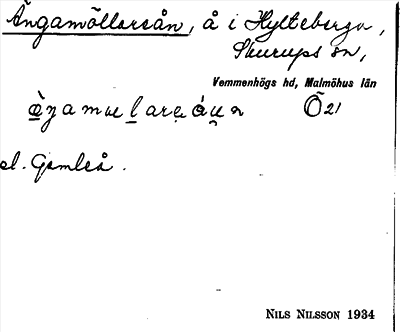 Ängamöllareån, å i Hylteberga,
Skurups sn,
Vemmenhögs hd, Malmöhus län
Ö 21
el. Gamleå.
NILS NILSSON 1934